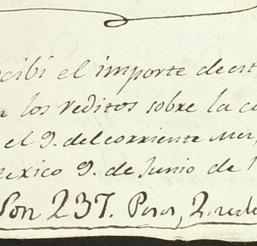 ecibi el importe de est
los reditos sobre la c
el 9. del corriente mes,
exico 9. de Junio de 1
Son 237. Pesos, 2. reale